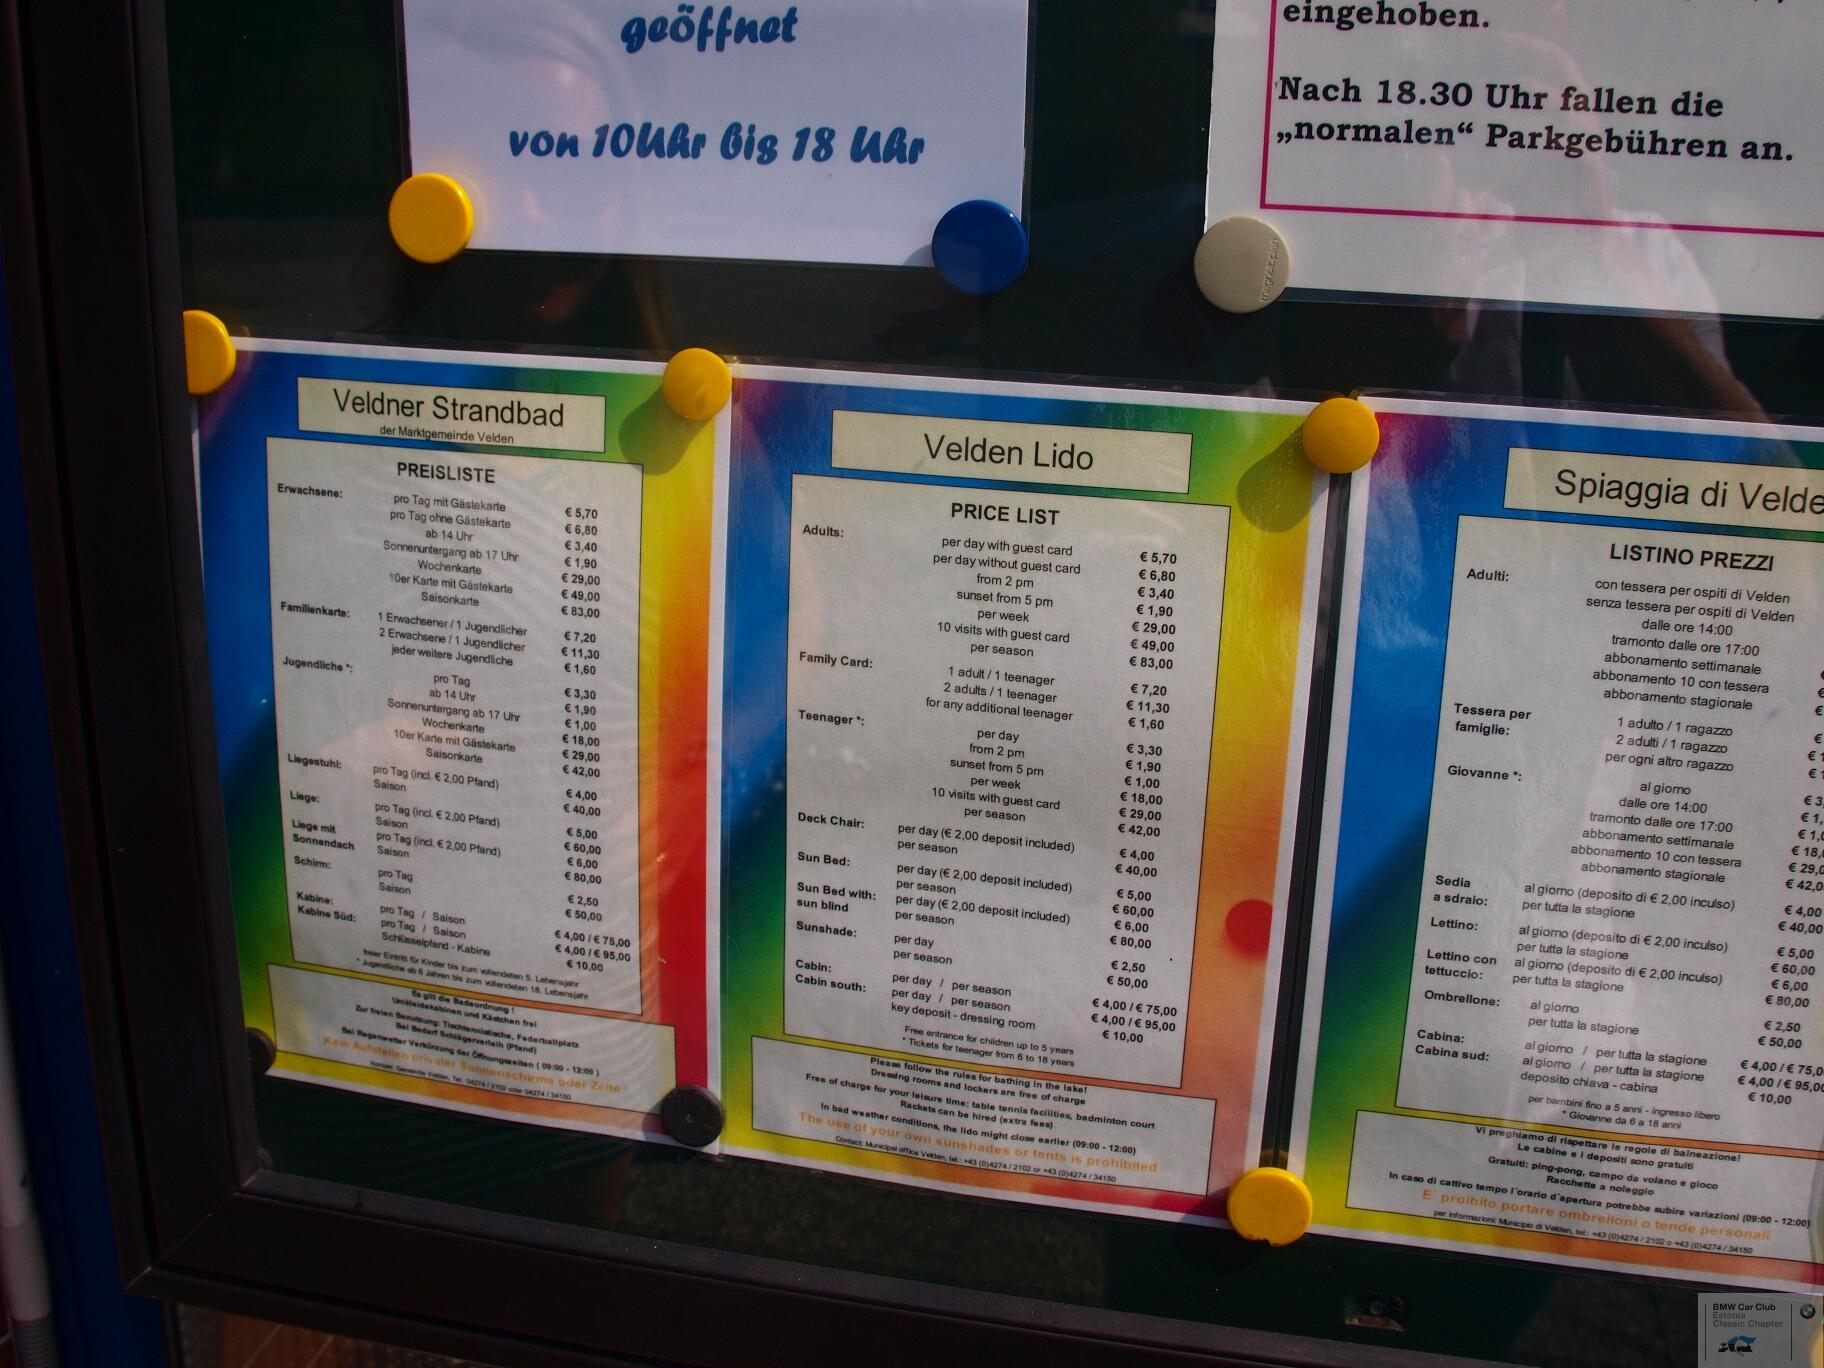 geöffnet
von 10Uhr bis 18 Uhr
eingehoben.
Nach 18.30 Uhr fallen die
„normalen“ Parkgebühren an.
magnetoplan
Veldner Strandbad
der Marktgemeinde Velden
PREISLISTE
Erwachsene:
pro Tag mit Gästekarte € 5,70
pro Tag ohne Gästekarte € 6,80
ab 14 Uhr € 3,40
Sonnenuntergang ab 17 Uhr € 1,90
Wochenkarte € 29,00
10er Karte mit Gästekarte € 49,00
Saisonkarte € 83,00
Familienkarte:
1 Erwachsener / 1 Jugendlicher € 7,20
2 Erwachsene / 1 Jugendlicher € 11,30
jeder weitere Jugendliche € 1,60
Jugendliche *:
pro Tag € 3,30
ab 14 Uhr € 1,90
Sonnenuntergang ab 17 Uhr € 1,00
Wochenkarte € 18,00
10er Karte mit Gästekarte € 29,00
Saisonkarte € 42,00
Liegestuhl:
pro Tag (incl. € 2,00 Pfand) € 4,00
Saison € 40,00
Liege:
pro Tag (incl. € 2,00 Pfand) € 5,00
Saison € 60,00
Liege mit
Sonnendach
pro Tag (incl. € 2,00 Pfand) € 6,00
Saison € 80,00
Schirm:
pro Tag € 2,50
Saison € 50,00
Kabine: pro Tag / Saison € 4,00 / € 75,00
Kabine Süd: pro Tag / Saison € 4,00 / € 95,00
Schlüsselpfand - Kabine € 10,00
freier Eintritt für Kinder bis zum vollendeten 5. Lebensjahr
* Jugendliche ab 6 Jahren bis zum vollendeten 18. Lebensjahr
Es gilt die Badeordnung !
Umkleidekabinen und Kästchen frei
Zur freien Benutzung: Tischtennistische, Federballplatz
Bei Bedarf Schlägerverleih (Pfand)
Bei Regenwetter Verkürzung der Öffnungszeiten ( 09:00 - 12:00 )
Kein Aufstellen privater Sonnenschirme oder Zelte
Kontakt: Gemeinde Velden, Tel.: 04274 / 2102 oder 04274 / 34150
Velden Lido
PRICE LIST
Adults:
per day with guest card € 5,70
per day without guest card € 6,80
from 2 pm € 3,40
sunset from 5 pm € 1,90
per week € 29,00
10 visits with guest card € 49,00
per season € 83,00
Family Card:
1 adult / 1 teenager € 7,20
2 adults / 1 teenager € 11,30
for any additional teenager € 1,60
Teenager *:
per day € 3,30
from 2 pm € 1,90
sunset from 5 pm € 1,00
per week € 18,00
10 visits with guest card € 29,00
per season € 42,00
Deck Chair:
per day (€ 2,00 deposit included) € 4,00
per season € 40,00
Sun Bed:
per day (€ 2,00 deposit included) € 5,00
per season € 60,00
Sun Bed with:
sun blind
per day (€ 2,00 deposit included) € 6,00
per season € 80,00
Sunshade:
per day € 2,50
per season € 50,00
Cabin: per day / per season € 4,00 / € 75,00
Cabin south: per day / per season € 4,00 / € 95,00
key deposit - dressing room € 10,00
Free entrance for children up to 5 years
* Tickets for teenager from 6 to 18 years
Please follow the rules for bathing in the lake!
Dressing rooms and lockers are free of charge
Free of charge for your leisure time: table tennis facilities, badminton court
Rackets can be hired (extra fees)
In bad weather conditions, the lido might close earlier (09:00 - 12:00)
The use of your own sunshades or tents is prohibited
Contact: Municipal office Velden, tel.: +43 (0)4274 / 2102 or +43 (0)4274 / 34150
Spiaggia di Velde
LISTINO PREZZI
Adulti:
con tessera per ospiti di Velden
senza tessera per ospiti di Velden
dalle ore 14:00
tramonto dalle ore 17:00
abbonamento settimanale €
abbonamento 10 con tessera €
abbonamento stagionale €
Tessera per
famiglie:
1 adulto / 1 ragazzo €
2 adulti / 1 ragazzo € 1
per ogni altro ragazzo € 1
Giovanne *:
al giorno € 3
dalle ore 14:00 € 1,
tramonto dalle ore 17:00 € 1,0
abbonamento settimanale € 18,
abbonamento 10 con tessera € 29,0
abbonamento stagionale € 42,0
Sedia
a sdraio:
al giorno (deposito di € 2,00 inculso) € 4,00
per tutta la stagione € 40,00
Lettino:
al giorno (deposito di € 2,00 inculso) € 5,00
per tutta la stagione € 60,00
Lettino con
tettuccio:
al giorno (deposito di € 2,00 inculso) € 6,00
per tutta la stagione € 80,00
Ombrellone:
al giorno € 2,50
per tutta la stagione € 50,00
Cabina: al giorno / per tutta la stagione € 4,00 / € 75,0
Cabina sud: al giorno / per tutta la stagione € 4,00 / € 95,0
deposito chiava - cabina € 10,00
per bambini fino a 5 anni - ingresso libero
* Giovanne da 6 a 18 anni
Vi preghiamo di rispettare le regole di balneazione!
Le cabine e i depositi sono gratuiti
Gratuiti: ping-pong, campo da volano e gioco
Racchette a noleggio
In caso di cattivo tempo l´orario d´apertura potrebbe subire variazioni (09:00 - 12:00)
E´ proibito portare ombrelloni o tende personali
per informazioni: Municipio di Velden, tel.: +43 (0)4274 / 2102 o +43 (0)4274 / 34150
BMW Car Club
Estonia
Classic Chapter